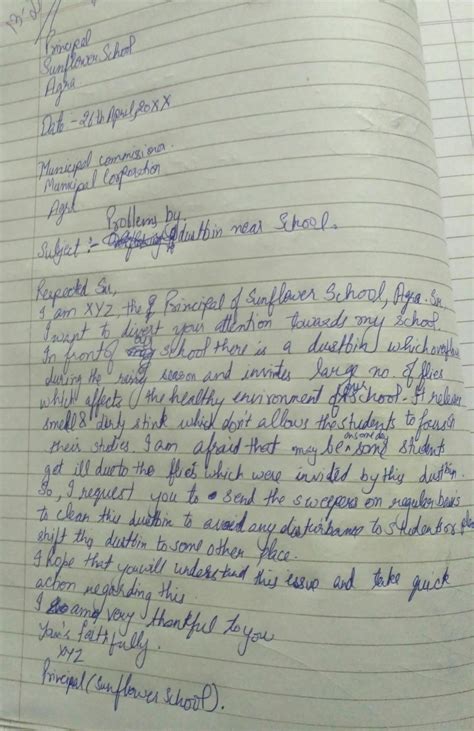 Principal
Sunflower School
Agra
Date - 26th April, 20XX
Municipal commissioner.
Municipal Corporation
Agra
Problems by
Subject :- dustbin near School.
Respected Sir,
I am XYZ, the Principal of Sunflower School, Agra. Sir
I want to divert your attention towards my school.
In front of my school there is a dustbin which overflow
during the rainy season and invites large no. of flies
which affects the healthy environment of our school. It releases
smell & dirty stink which don't allows the students to focus in
their studies. I am afraid that may be on some day some students
get ill due to the flies which were invited by this dustbin.
So, I request you to send the sweepers on regular basis
to clear this dustbin to avoid any disturbance to students or
shift this dustbin to some other place.
I hope that you will understand this issue and take quick
action regarding this.
I am very thankful to you
Your's faithfully.
XYZ
Principal (Sunflower School).